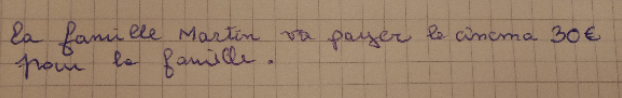 La famille Martin va payer le cinema 30€
pour la famille.